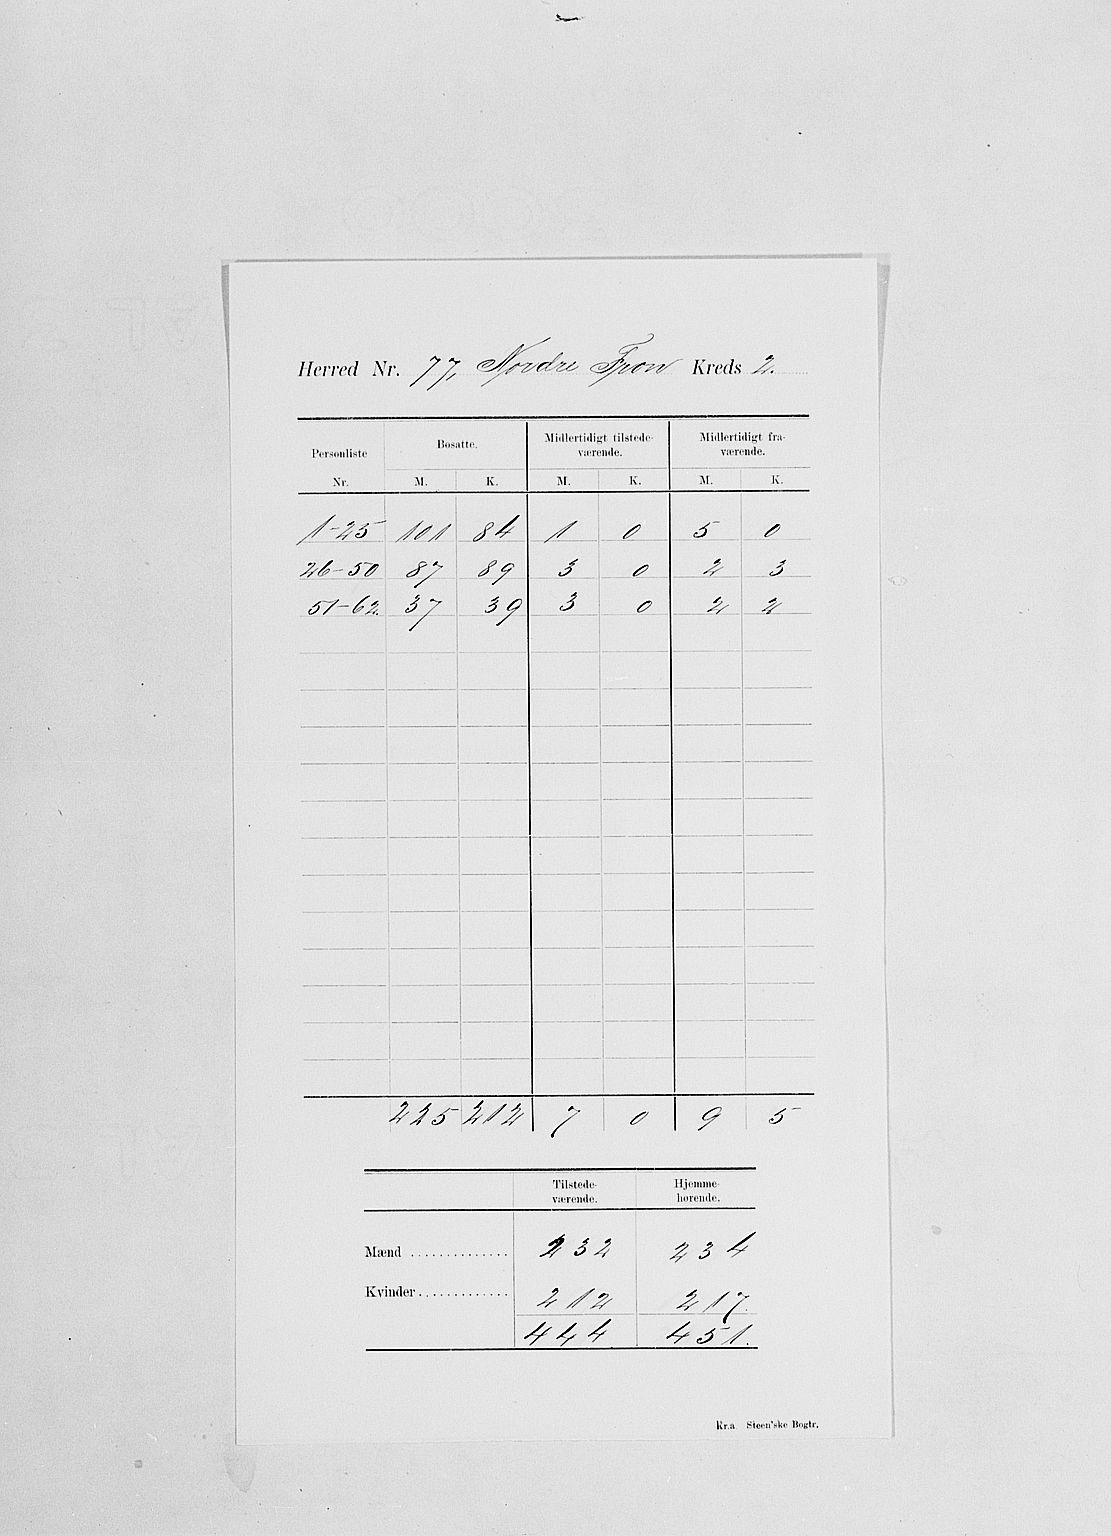 Herred Nr. 77, Nordre Fron Kreds 2.
Personliste Bosatte. Midlertidigt tilstede- Midlertidigt fra-
værende. værende.
Nr. M. K. M. K. M. K.
1-25 101 84 1 0 5 0
26-50 87 89 3 0 2 3
51-62. 37 39 3 0 2 2
225 212 7 0 9 5
Tilstede- Hjemme-
værende. hørende.
Mænd .............. 232 234
Kvinder ............. 212 217.
444 451.
Kr.a Steen'ske Bogtr.